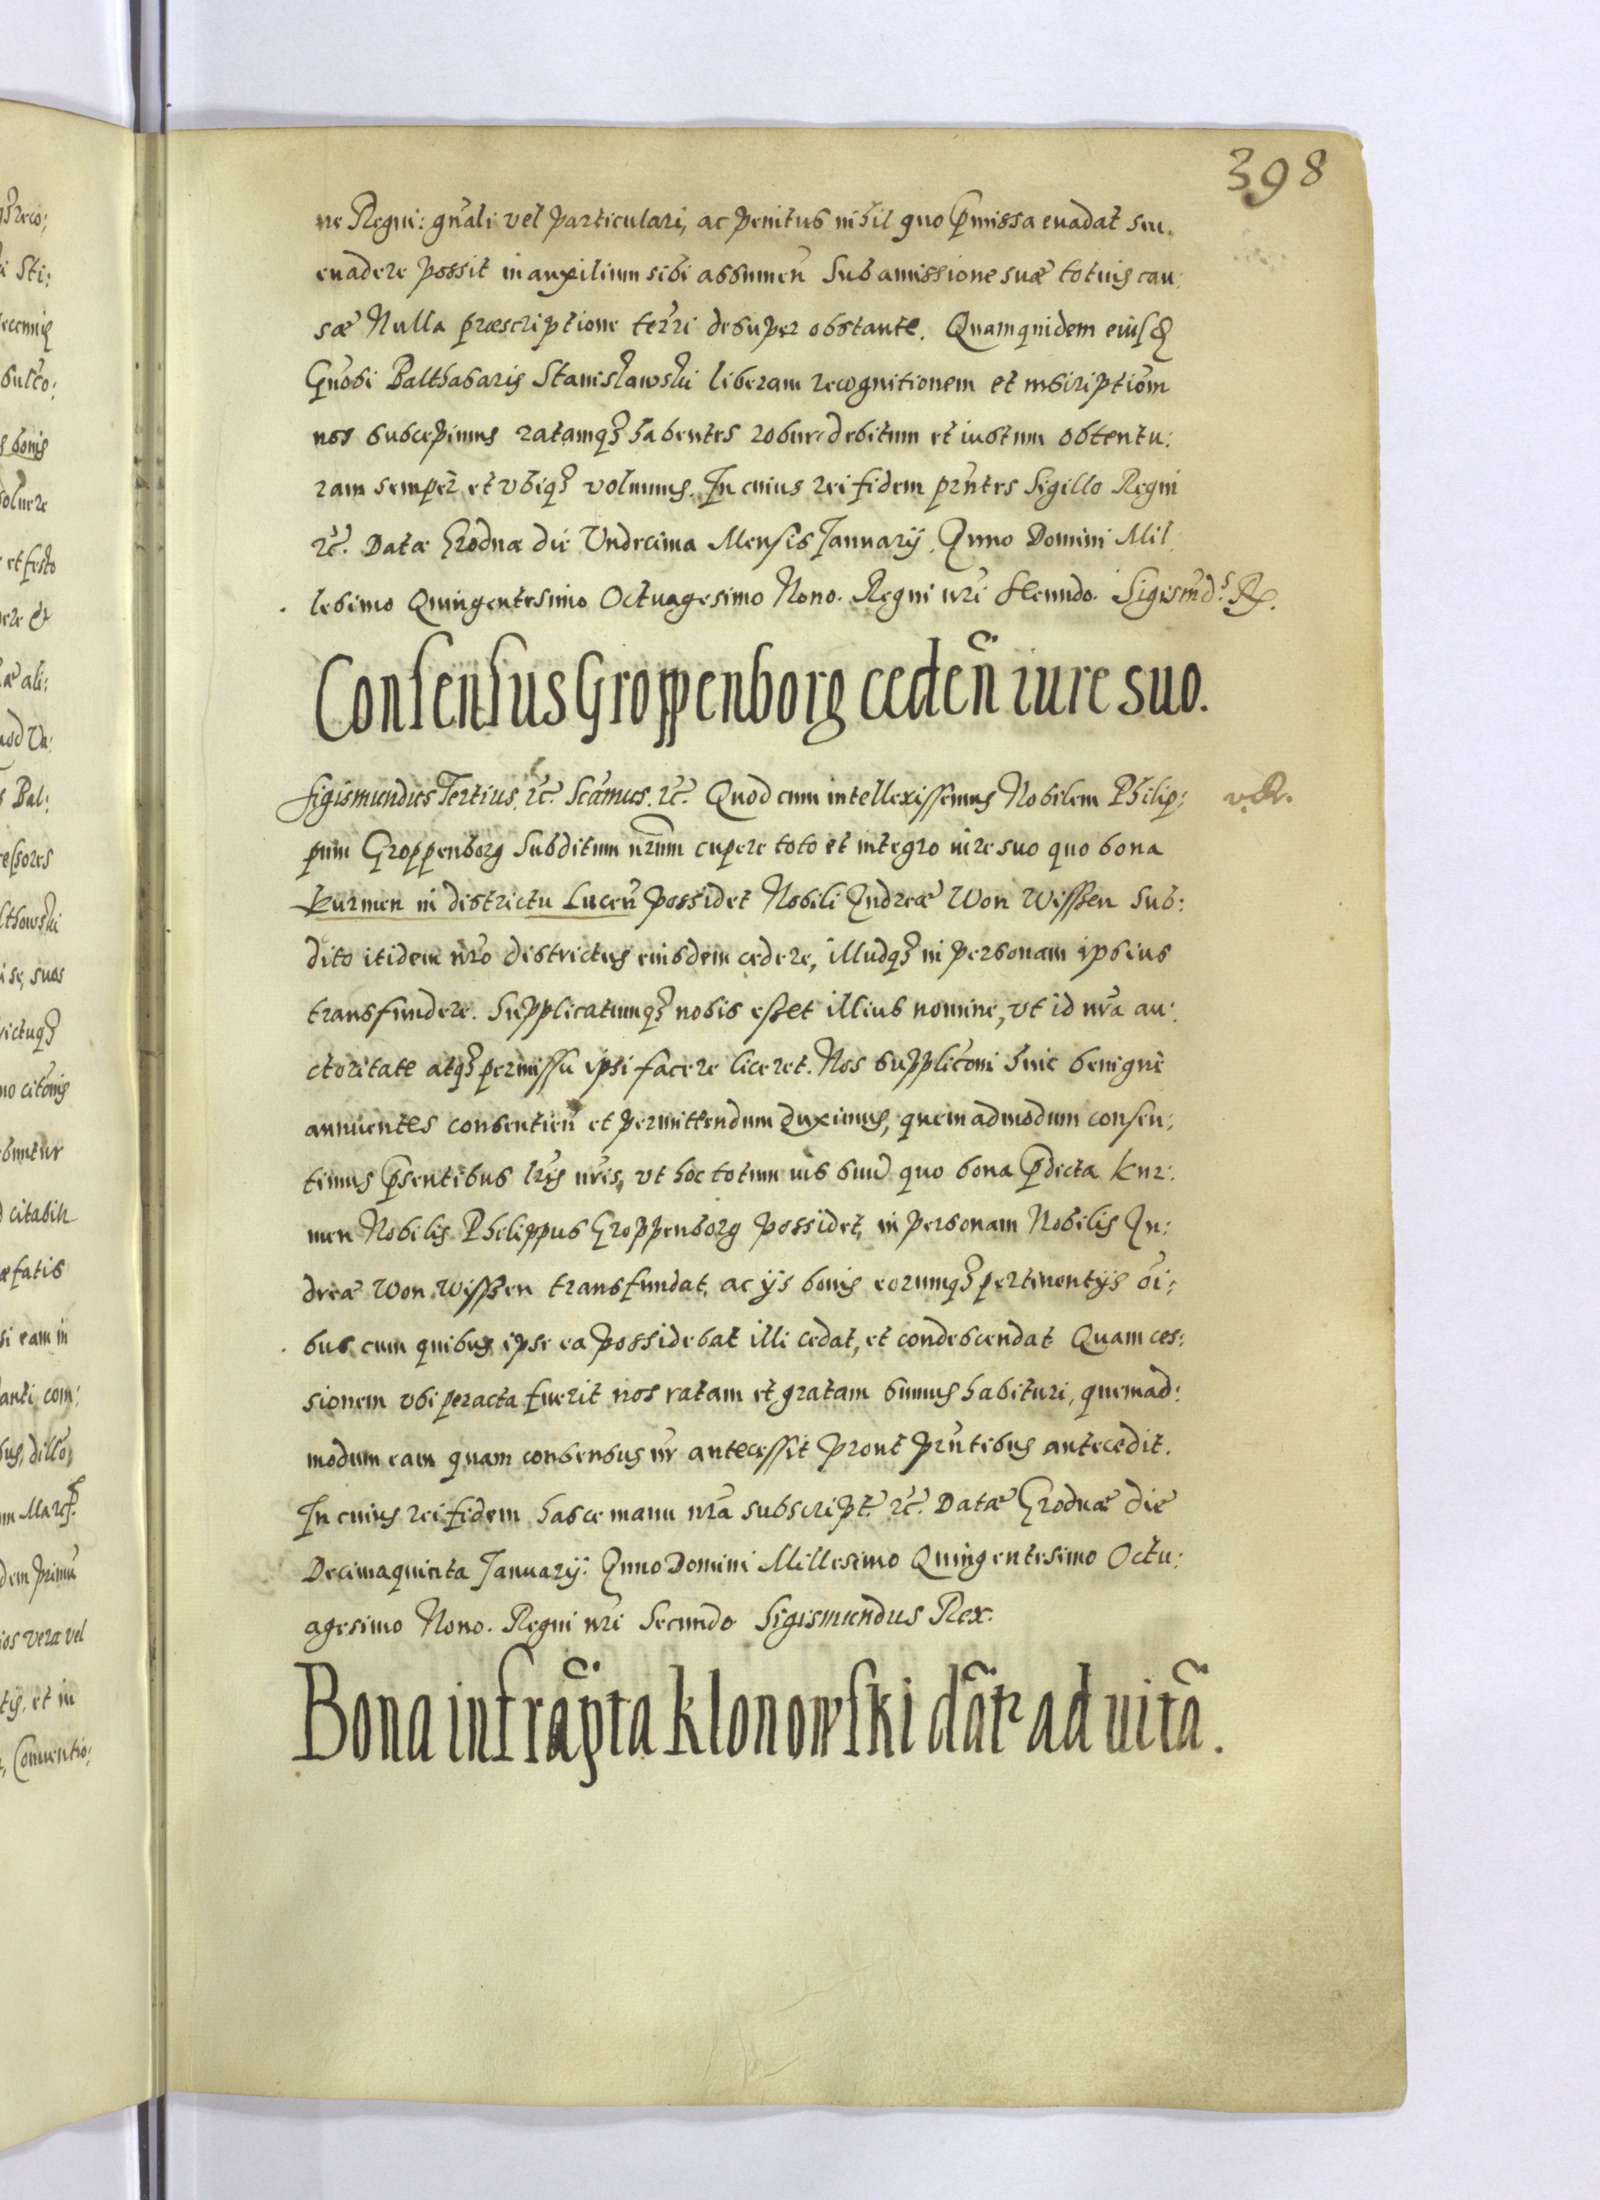 398
ne Regni: gñali vel particulari, ac penitus nihil quo p̃missa euadat seu
euadere possit in auxilium sibi assumeñ Sub amissione suæ totius cau:
sæ Nulla præscriptione terri desuper obstante. Quamquidem eiusd
Gñosi Balthasaris Stanisławski liberam recognitionem et inscriptiõm
nos suscepimus ratamq3 habentes robur debitum et iustum obtentu:
ram semper et vbiq3 volumus. In cuius rei fidem prñtes Sigillo Regni
rc̃. Datæ Grodnæ die Vndecima Mensis January. Anno Domini Mil
lesimo Quingentesimo Octuagesimo Nono. Regni nr̃i scdo. Sigism̃ds Rx.
Consensus Groppenborg cedeñ iure suo.
Sigismundus Tertius, rc̃. Scãmus. rc̃. Quod cum intellexissemus Nobilem Philip:
pum Groppenborg Subditum nr̃um cupere toto et integro iure suo quo bona
Kurmen in districtu Luceñ possidet Nobili Andreæ Won Wissen Sub:
dito itidem nr̃o districtus eiusdem cedere, illudq3 in personam ipsius
transfundere. Supplicatumq3 nobis esset illius nomine, vt id nr̃a au:
ctoritate atq3 permissu ipsi facere liceret. Nos supplicõni huic benignè
annuentes consentieñ et permittendum duximus, quemadmodum consen:
timus p̃sentibus lr̃is nr̃is, vt hoc totum ius suũ quo bona p̃dicta Kur:
men Nobilis Philippus Groppenborg possidet, in personam Nobilis An:
dreæ Won Wissen transfundat, ac ijs bonis eorumq3 pertinentijs õi:
bus cum quibus ipse ea possidebat illi cedat, et condescendat Quam ces:
sionem vbi peracta fuerit nos ratam et gratam sumus habituri, quemad:
modum eam quam consensus nr̃ antecessit prout prñtibus antecedit.
In cuius rei fidem hasce manu nr̃a subscript. rc̃. Datæ Grodnæ die
Decimaquinta January: Anno Domini Millesimo Quingentesimo Octu:
agesimo Nono. Regni nr̃i Secundo Sigismundus Rex.
Bona infrãpta Klonowski dãtr ad uitã.